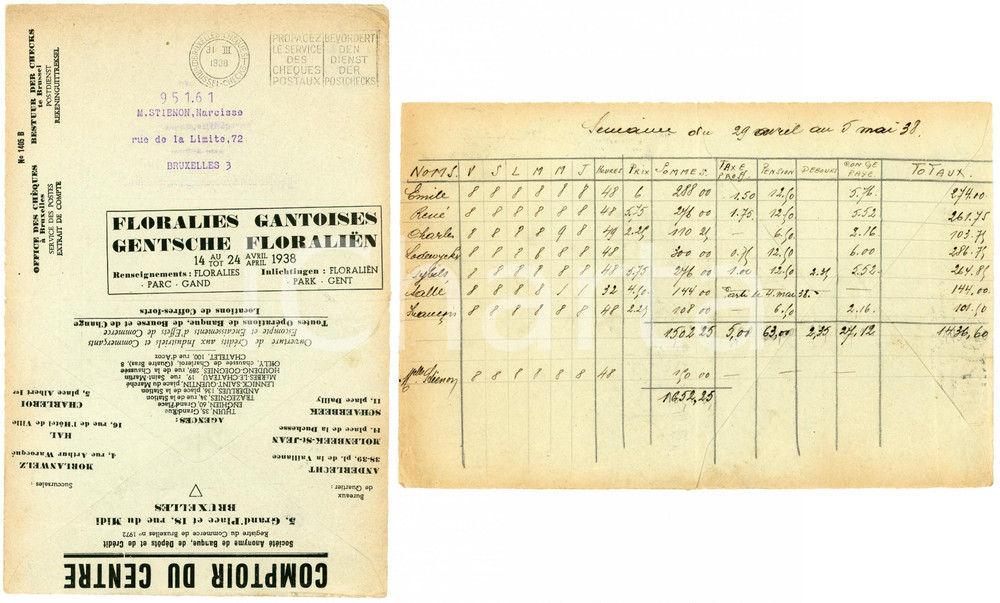 BRUXELLES-CHEQUES
31 III
1938
BRUSSEL-CHECKS
PROPAGEZ
LE SERVICE
DES
CHEQUES
POSTAUX
BEVORDERT
DEN
DIENST
DER
POSTCHECKS
95161
M.STIENON,Narcisse
rue de la Limite,72
BRUXELLES 3
No 1405 B
OFFICE DES CHÈQUES
à Bruxelles
SERVICE DES POSTES
EXTRAIT DE COMPTE
BESTUUR DER CHECKS
te Brussel
POSTDIENST
REKENINGUITTREKSEL
FLORALIES GANTOISES
GENTSCHE FLORALIËN
14 AU TOT 24 AVRIL APRIL 1938
Renseignements : FLORALIES
- PARC - GAND
Inlichtingen : FLORALIËN
- PARK - GENT
COMPTOIR DU CENTRE
Société Anonyme de Banque, de Dépôts et de Crédit
Registre du Commerce de Bruxelles no 1972
5, Grand'Place et 18, rue du Midi
BRUXELLES
Bureaux
de Quartier :
ANDERLECHT
38-39, pl. de la Vaillance
MOLENBEEK-St-JEAN
11, place de la Duchesse
SCHAERBEEK
11, place Dailly
Succursales :
MORLANWELZ
4, rue Arthur Warocqué
HAL
16, rue de l'Hôtel de Ville
CHARLEROI
5, place Albert Ier
AGENCES :
THUIN, 35, Grand'Rue
ENGHIEN, 60, Grand'Place
TRAZEGNIES, 74, rue de la Station
ANDERLUES, 136, place de la Station
LENNICK-SAINT-QUENTIN, place du Marché
MERBES-LE-CHATEAU, 19, rue Saint-Martin
HOUDING-GOEGNIES, 289, rue de la Chaussée
GILLY, chaussée de Charleroi, (Quatre Bras), 8
CHATELET, 100, rue d'Acoz
Ouverture de Crédits aux Industriels et Commerçants
Escompte et Encaissements d'Effets de Commerce
Toutes Opérations de Banque, de Bourse et de Change
Locations de Coffres-forts
Semaine du 29 avril au 5 mai 38.
NOMS. V S L M M J HEURES PRIX SOMMES. TAXE PROF. PENSION DEBOURS CONGE PAYE. TOTAUX.
Emile 8 8 8 8 8 8 48 6 288 00 1.50 12,50 5.76. 274.00
René 8 8 8 8 8 8 48 5,75 276 00 1.75. 12.50 5.52 261.75
Charles 8 8 8 8 9 8 49 2.25 110 25 — 6,50 2.16 103.75
Lodewyckx 8 8 8 8 8 8 48 300 00 0.75 12,50 6.00 286.75
8 8 8 8 8 8 48 5,75 276 00 1.00 12.50 2.35 5.52. 264.85
8 8 8 8 / / 32 4,50 144 00 Parti le 4 mai 38. 144.00
François 8 8 8 8 8 8 48 2.25 108 00 — 6.50 2.16. 101.50
1502 25 5,00 63,00 2,35 27,12 1436,60
Melle Stienon 8 8 8 8 8 8 48 150 00 — —
1652,25